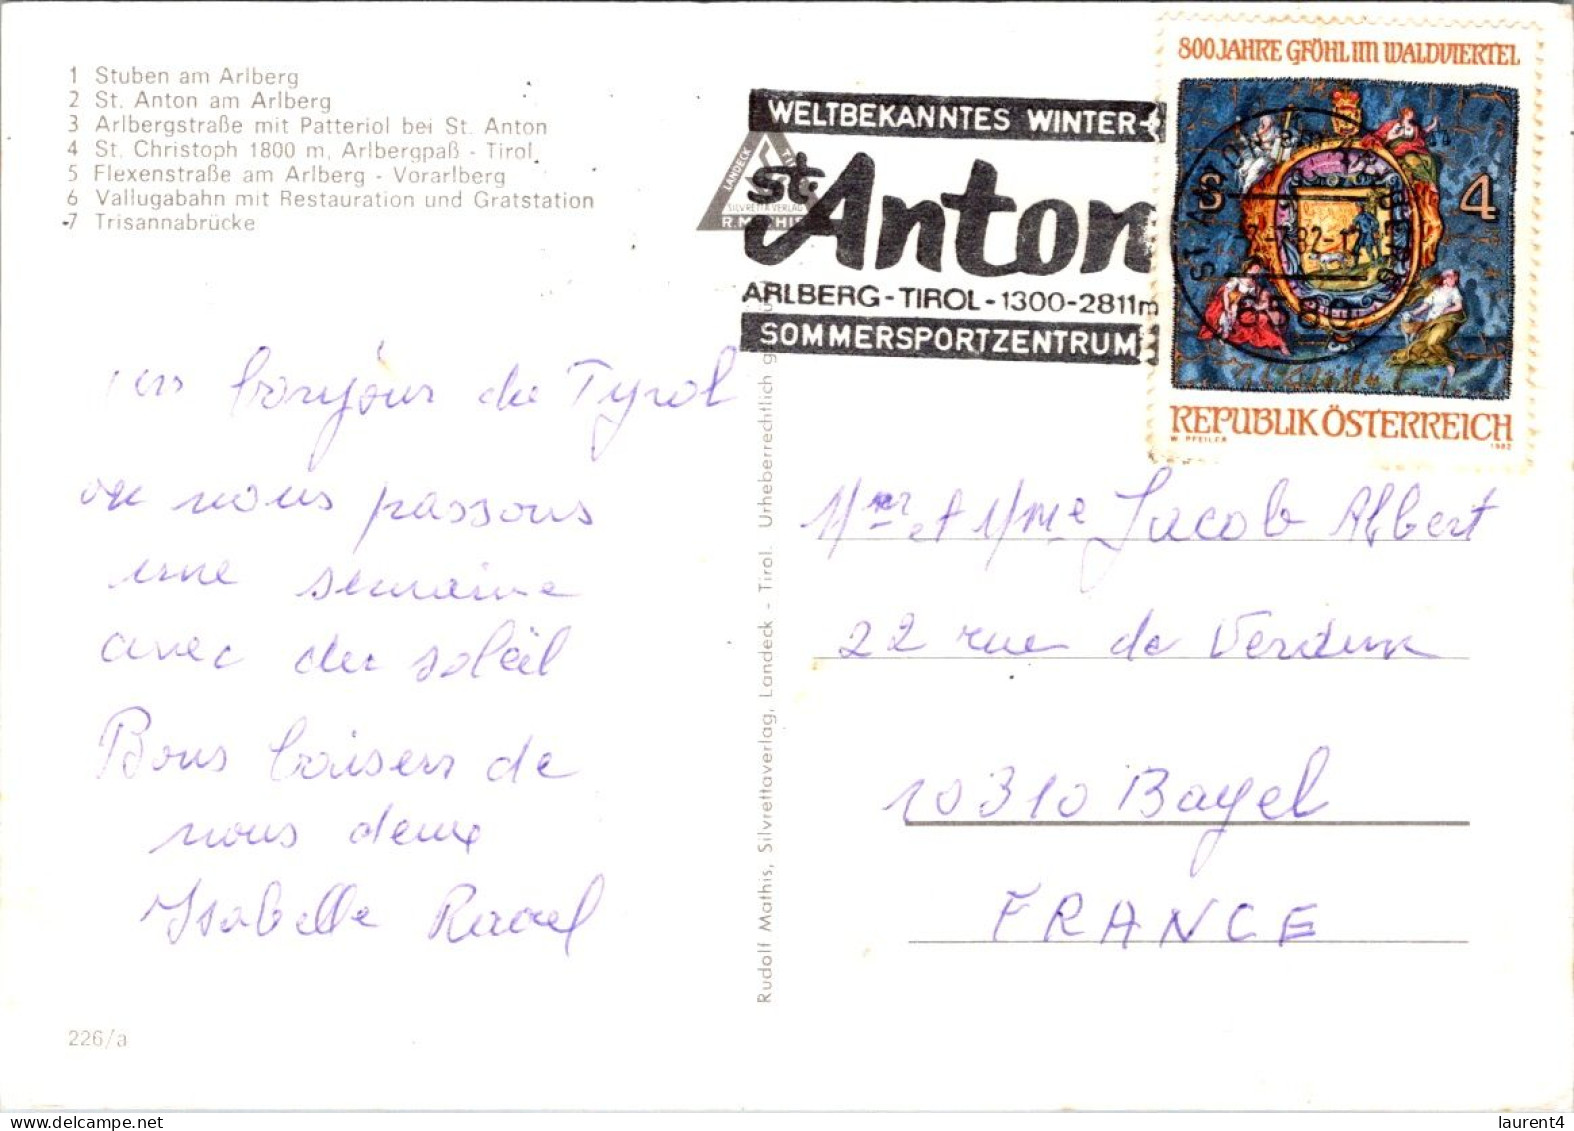 1 Stuben am Arlberg
2 St. Anton am Arlberg
3 Arlbergstraße mit Patteriol bei St. Anton
4 St. Christoph 1800 m, Arlbergpaß - Tirol
5 Flexenstraße am Arlberg - Vorarlberg
6 Vallugabahn mit Restauration und Gratstation
7 Trisannabrücke
LANDECK
SILVRETTAVERLAG
R. MATHIS
WELTBEKANNTES WINTER-
St. Anton
ARLBERG-TIROL-1300-2811m
SOMMERSPORTZENTRUM
800 JAHRE GFÖHL IM WALDVIERTEL
S 4
6580
REPUBLIK ÖSTERREICH
W. PFEILER 1982
un bonjour du Tyrol
ou nous passons
une semaine
avec du soleil
Bons baisers de
nous deux
Isabelle Raoul
226/a
Rudolf Mathis, Silvrettaverlag, Landeck - Tirol. Urheberrechtlich
Mr et Mme Jacob Albert
22 rue de Verdun
10310 Bayel
FRANCE
laurent4